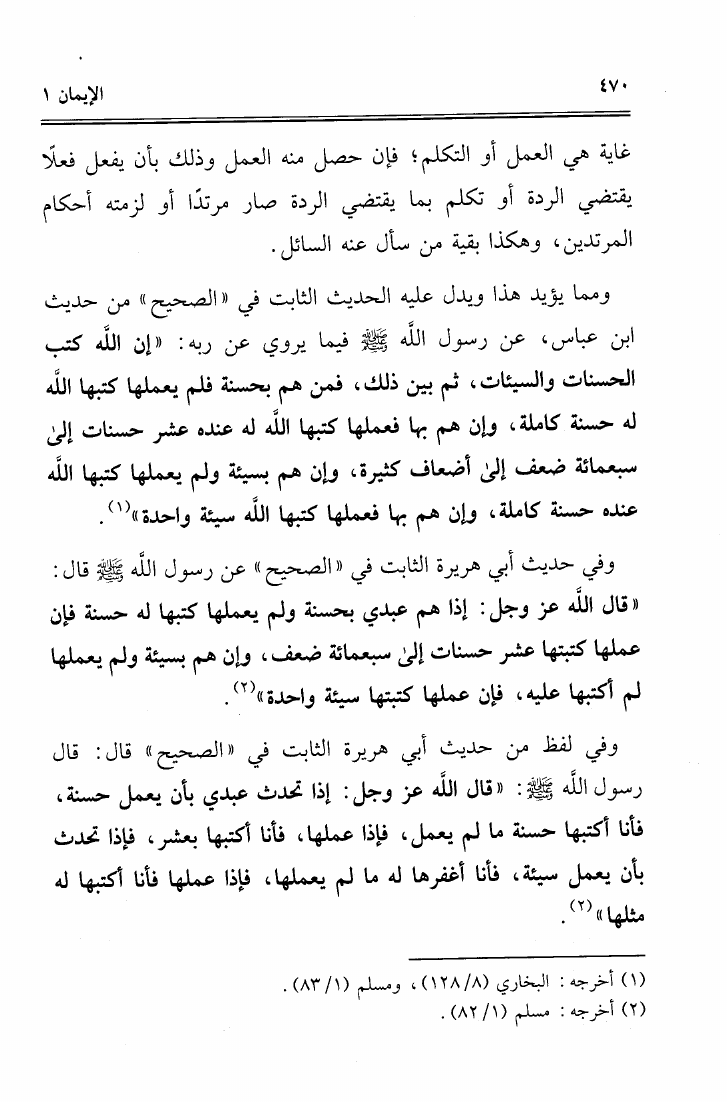 ٤٧٠
الإيمان ١
غاية هي العمل أو التكلم؛ فإن حصل منه العمل وذلك بأن يفعل فعلًا
يقتضي الردة أو تكلم بما يقتضي الردة صار مرتدًا أو لزمته أحكام
المرتدين، وهكذا بقية من سأل عنه السائل.
ومما يؤيد هذا ويدل عليه الحديث الثابت في «الصحيح» من حديث
ابن عباس، عن رسول اللَّه ﷺ فيما يروي عن ربه: «إن اللَّه كتب
الحسنات والسيئات، ثم بين ذلك، فمن هم بحسنة فلم يعملها كتبها اللَّه
له حسنة كاملة، وإن هم بها فعملها كتبها اللَّه له عنده عشر حسنات إلىٰ
سبعمائة ضعف إلىٰ أضعاف كثيرة، وإن هم بسيئة ولم يعملها كتبها اللَّه
عنده حسنة كاملة، وإن هم بها فعملها كتبها اللَّه سيئة واحدة»(١).
وفي حديث أبي هريرة الثابت في «الصحيح» عن رسول اللَّه ﷺ قال:
«قال اللَّه عز وجل: إذا هم عبدي بحسنة ولم يعملها كتبها له حسنة فإن
عملها كتبتها عشر حسنات إلىٰ سبعمائة ضعف، وإن هم بسيئة ولم يعملها
لم أكتبها عليه، فإن عملها كتبتها سيئة واحدة»(٢).
وفي لفظ من حديث أبي هريرة الثابت في «الصحيح» قال: قال
رسول اللَّه ﷺ: «قال اللَّه عز وجل: إذا تحدث عبدي بأن يعمل حسنة،
فأنا أكتبها حسنة ما لم يعمل، فإذا عملها، فأنا أكتبها بعشر، فإذا تحدث
بأن يعمل سيئة، فأنا أغفرها له ما لم يعملها، فإذا عملها فأنا أكتبها له
مثلها»(٢).
(١) أخرجه: البخاري (١٢٨/٨)، ومسلم (٨٣/١).
(٢) أخرجه: مسلم (٨٢/١).